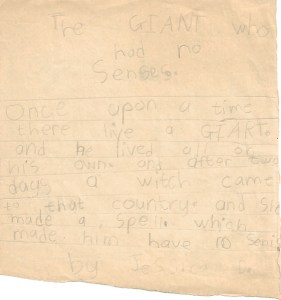 The GIANT who
had no
Senses.
Once upon a time
there live a GIANT.
and he lived all on
his own. and after two
days a witch came
to that country. and She
made a Spell. which
made him have no Sens
by